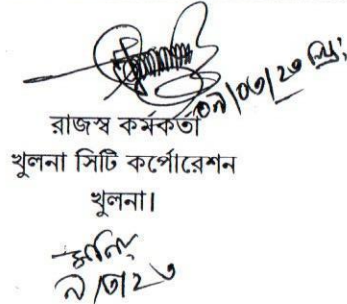 ০৯/০৩/২৩ খ্রি:
রাজস্ব কর্মকর্তা
খুলনা সিটি কর্পোরেশন
খুলনা।
৯/৩/২৩